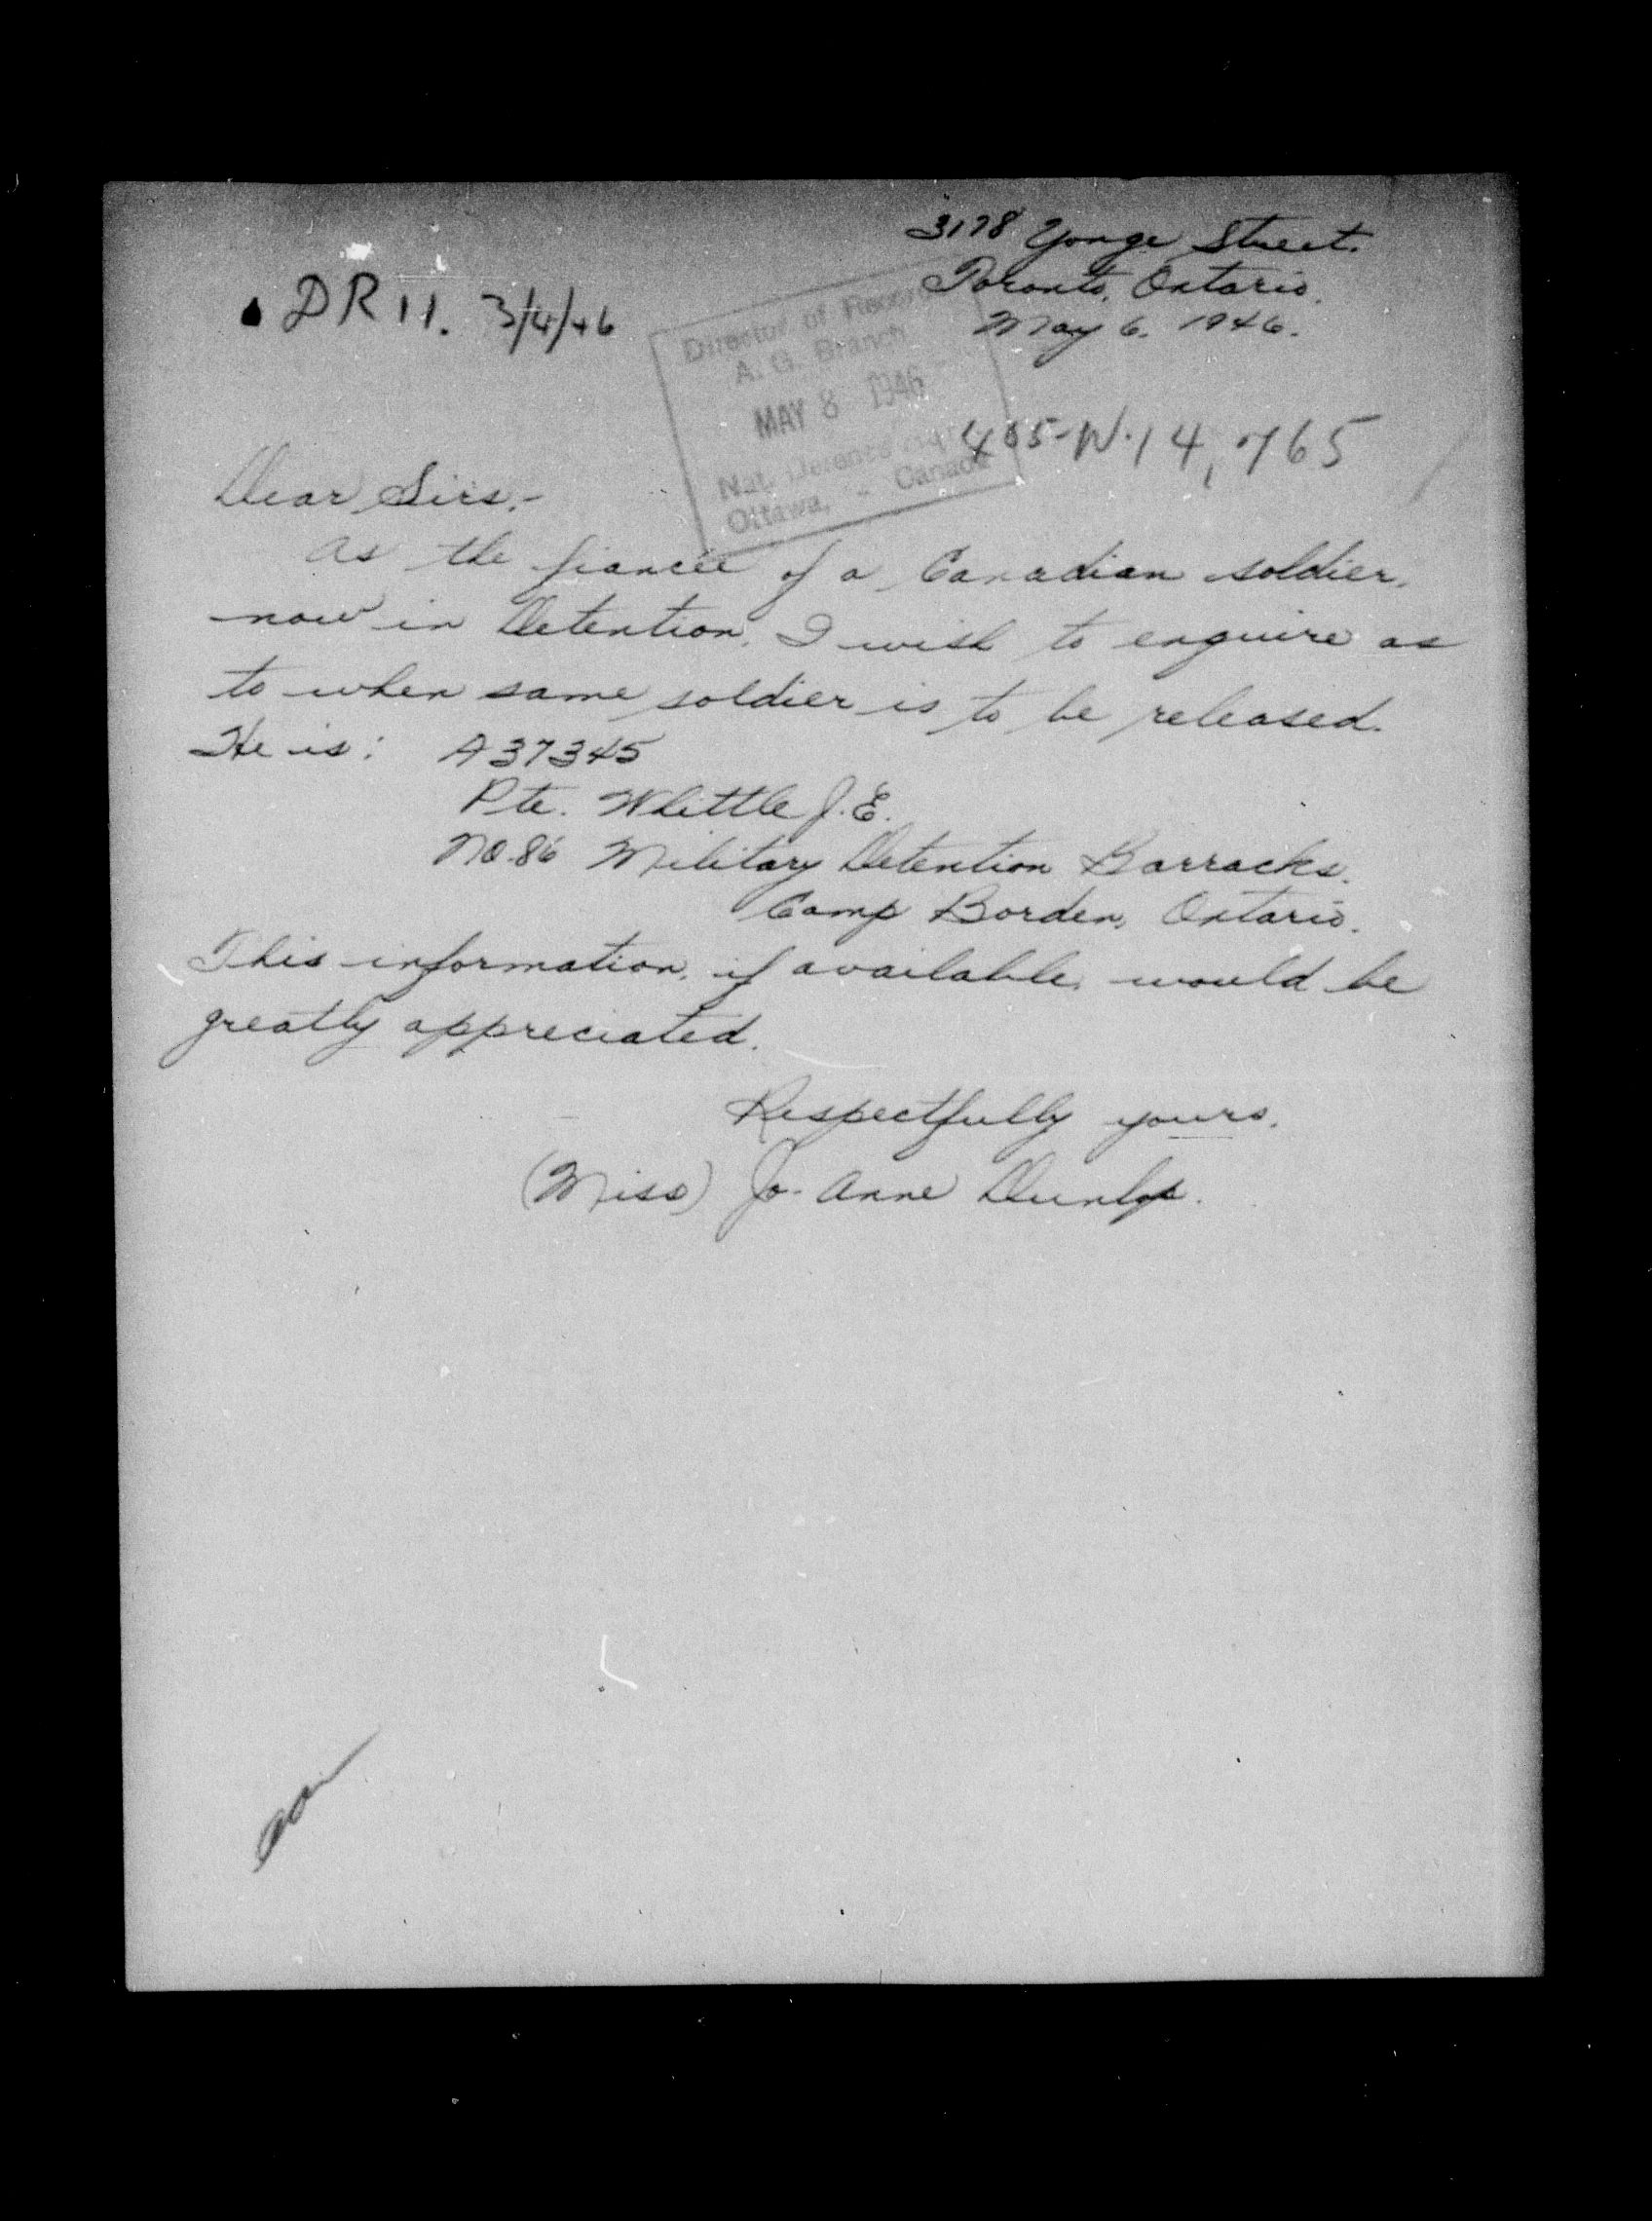 3178 Yonge Street.
Toronto, Ontario.
May 6. 1946.
DR 11. 3/4/46
Director of Records
A. G. Branch
MAY 8 1946
Nat. Defence
Ottawa, - Canada
405-W-14,765
Dear Sirs,-
As the fiancée of a Canadian soldier,
now in Detention, I wish to enquire as
to when same soldier is to be released.
He is: A37345
Pte. Whittle J.E.
No. 86 Military Detention Barracks.
Camp Borden, Ontario.
This information, if available, would be
greatly appreciated.
Respectfully yours,
(Miss) Jo-Anne Dunlop.